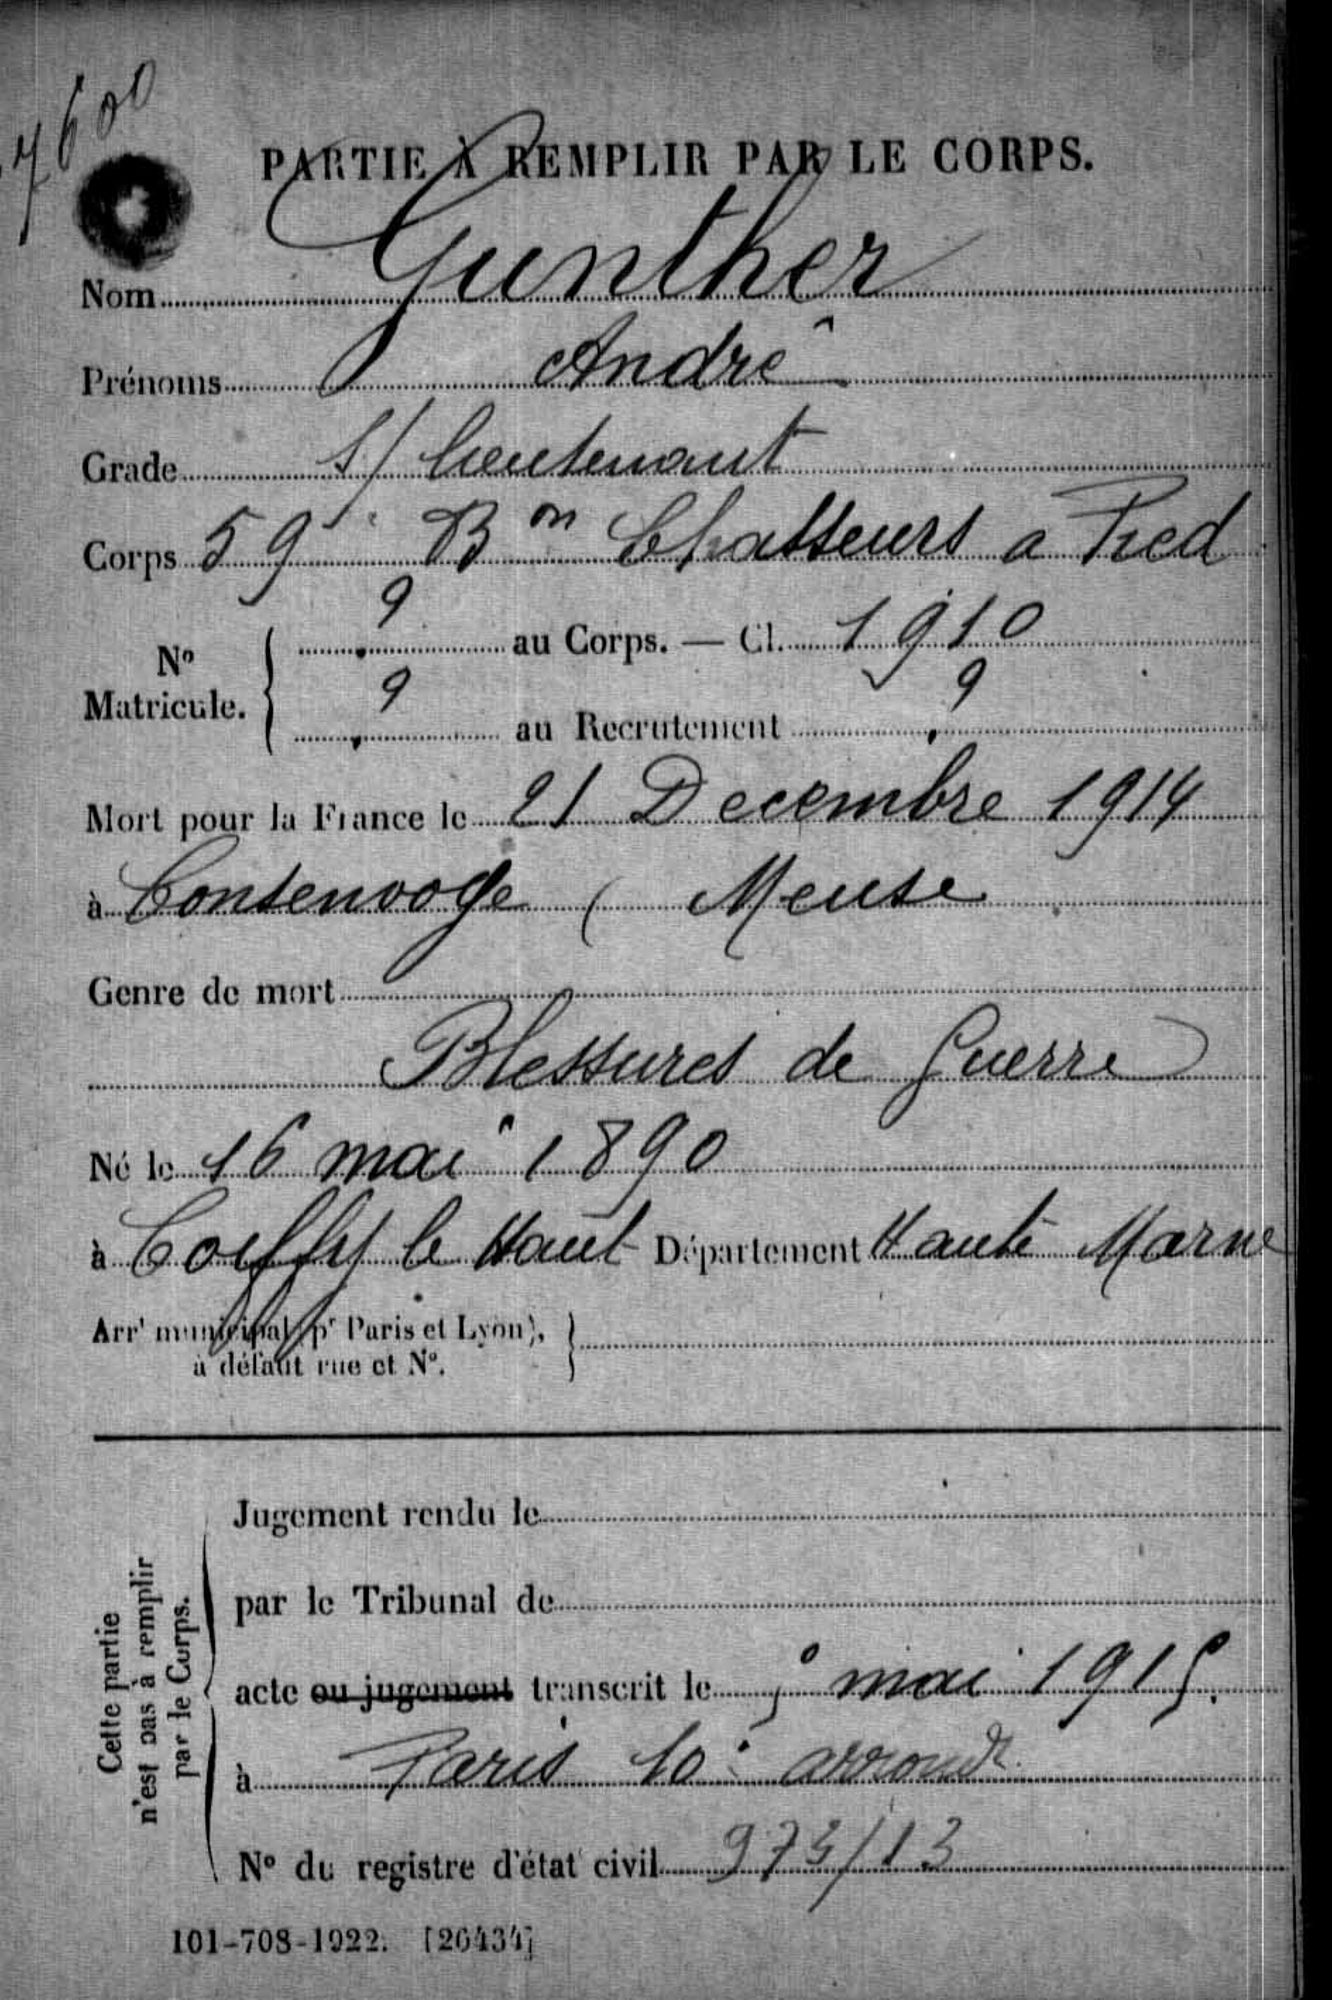 7600
PARTIE À REMPLIR PAR LE CORPS.
Nom Gunther
Prénoms André
Grade S/ lieutenant
Corps 59e Bon Chasseurs a Pied
No Matricule. { ? au Corps. — Cl. 1910
? au Recrutement ?
Mort pour la France le 21 Decembre 1914
à Consenvoye ( Meuse
Genre de mort
Blessures de Guerre
Né le 16 mai 1890
à Coiffy le Haut Département Haute Marne
Arrt municipal (pr Paris et Lyon),
à défaut rue et No.
Cette partie
n'est pas à remplir
par le Corps.
Jugement rendu le
par le Tribunal de
acte ou jugement transcrit le mai 1915.
à Paris 10e arrondt
No du registre d'état civil 973/13
101-708-1922. [26434]